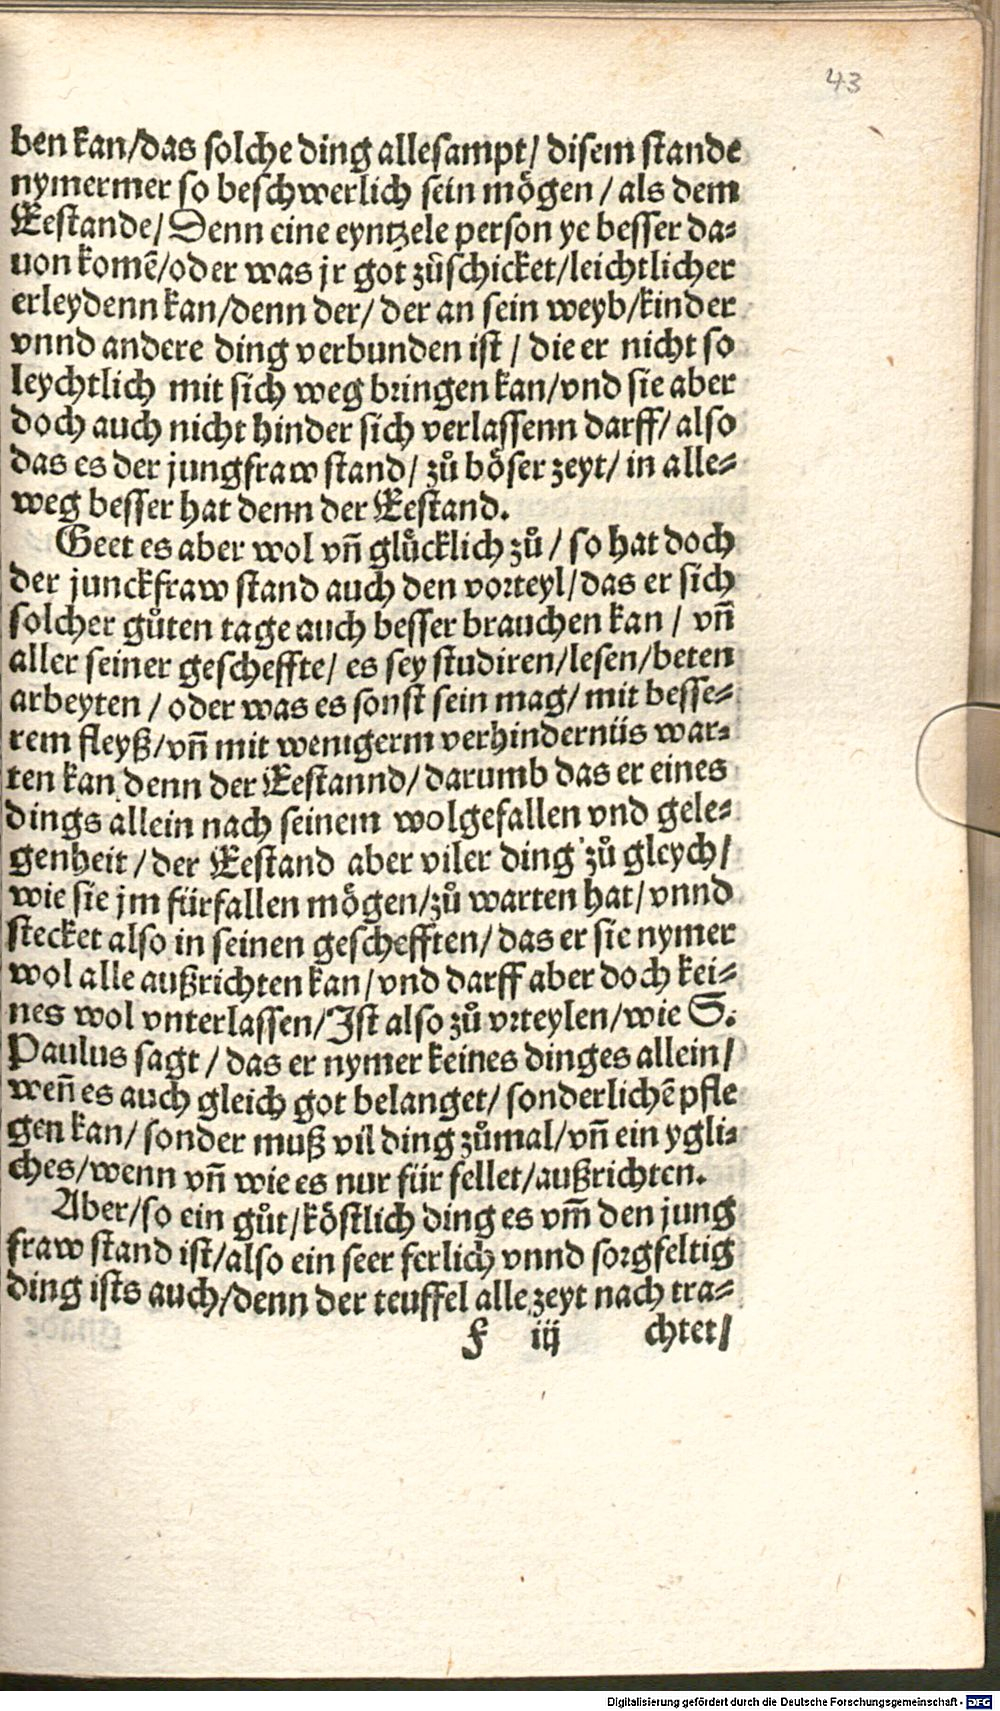 43
ben kan/das solche ding allesampt/ disem stande
nymermer so beschwerlich sein mögen / als dem
Eestande/ Denn eine eyntzele person ye besser da⸗
uon komẽ/oder was jr got zůschicket/leichtlicher
erleydenn kan/denn der/ der an sein weyb/kinder
vnnd andere ding verbunden ist / die er nicht so
leychtlich mit sich weg bringen kan/vnd sie aber
doch auch nicht hinder sich verlassenn darff/ also
das es der jungfraw stand/ zů böser zeyt/ in alle⸗
weg besser hat denn der Eestand.
Geet es aber wol vñ glücklich zů / so hat doch
der junckfraw stand auch den vorteyl/das er sich
solcher gůten tage auch besser brauchen kan / vñ
aller seiner gescheffte/ es sey studiren/lesen/beten
arbeyten / oder was es sonst sein mag/ mit besse⸗
rem fleyß/vñ mit wenigerm verhindernüs war⸗
ten kan denn der Eestannd/ darumb das er eines
dings allein nach seinem wolgefallen vnd gele⸗
genheit / der Eestand aber viler ding zů gleych/
wie sie jm fürfallen mögen/zů warten hat/ vnnd
stecket also in seinen geschefften/ das er sie nymer
wol alle außrichten kan/vnd darff aber doch kei⸗
nes wol vnterlassen/Ist also zů vrteylen/wie S.
Paulus sagt / das er nymer keines dinges allein/
weñ es auch gleich got belanget/ sonderlichẽ pfle
gen kan/ sonder muß vil ding zůmal/vñ ein ygli⸗
ches/wenn vñ wie es nur für fellet/außrichten.
Aber/so ein gůt/köstlich ding es vm̃ den jung
fraw stand ist/also ein seer ferlich vnnd sorgfeltig
ding ists auch/denn der teuffel alle zeyt nach tra⸗
f iij chtet/
Digitalisierung gefördert durch die Deutsche Forschungsgemeinschaft - DFG